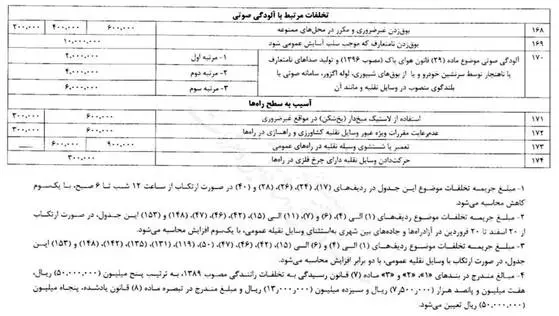 تخلفات مرتبط با آلودگی صوتی
۱۶۸ بوق‌زدن غیرضروری و مکرر در محل‌های ممنوعه ۶۰۰,۰۰۰ ۴۰۰,۰۰۰ ۲۰۰,۰۰۰
۱۶۹ بوق‌زدن نامتعارف که موجب سلب آسایش عمومی شود ۱۰,۰۰۰,۰۰۰
۱۷۰ آلودگی صوتی موضوع ماده (۲۹) قانون هوای پاک (مصوب ۱۳۹۶) و تولید صداهای نامتعارف ۱- مرتبه اول ۲,۰۰۰,۰۰۰
یا ناهنجار توسط سرنشین خودرو و یا از بوق‌های شیپوری، لوله اگزوز، سامانه صوتی یا ۲- مرتبه دوم ۴,۰۰۰,۰۰۰
بلندگوی منصوب در وسایل نقلیه و مانند آن ۳- مرتبه سوم ۶,۰۰۰,۰۰۰
آسیب به سطح راه‌ها
۱۷۱ استفاده از لاستیک میخ‌دار (یخ‌شکن) در مواقع غیرضروری ۶۰۰,۰۰۰ ۳۰۰,۰۰۰
۱۷۲ عدم‌رعایت مقررات ویژه عبور وسایل نقلیه کشاورزی و راهسازی در راه‌ها ۶۰۰,۰۰۰ ۳۰۰,۰۰۰
۱۷۳ تعمیر یا شستشوی وسیله نقلیه در راه‌های عمومی ۹۰۰,۰۰۰ ۶۰۰,۰۰۰
۱۷۴ حرکت‌دادن وسایل نقلیه دارای چرخ فلزی در راه‌ها ۳۰۰,۰۰۰
۱- مبلغ جریمه تخلفات موضوع این جدول در ردیف‌های (۱۷)، (۲۴)، (۲۶)، (۲۸) و (۴۰) در صورت ارتکاب از ساعت ۱۲ شب تا ۶ صبح، با یک‌سوم
کاهش محاسبه می‌شود.
۲- مبلغ جریمه تخلفات موضوع ردیف‌های (۱) الی (۴)، (۶) و (۷)، (۱۱) الی (۱۵)، (۴۲)، (۴۶)، (۴۷)، (۱۴۸) و (۱۵۳) این جدول، در صورت ارتکاب
از ۲۰ اسفند تا ۲۰ فروردین در آزادراه‌ها و جاده‌های بین شهری به‌استثنای وسایل نقلیه عمومی، با یک‌سوم افزایش محاسبه می‌شود.
۳- مبلغ جریمه تخلفات موضوع ردیف‌های (۱) الی (۴) و (۶) الی (۱۵)، (۴۲)، (۴۶)، (۴۷)، (۵۰)، (۱۱۹)، (۱۳۱)، (۱۳۵)، (۱۴۲)، (۱۴۸) و (۱۵۳) این
جدول، در صورت ارتکاب با وسایل نقلیه عمومی، با دو برابر افزایش محاسبه می‌شود.
۴- مبالغ مندرج در بندهای «۱»، «۲» و «۳» ماده (۷) قانون رسیدگی به تخلفات رانندگی مصوب ۱۳۸۹، به ترتیب پنج میلیون (۵۰,۰۰۰,۰۰۰) ریال،
هفت میلیون و پانصد هزار (۷,۵۰۰,۰۰۰) ریال و سیزده میلیون (۱۳,۰۰۰,۰۰۰) ریال و مبلغ مندرج در تبصره ماده (۸) قانون یادشده، پنجاه میلیون
(۵۰,۰۰۰,۰۰۰) ریال تعیین می‌شود.